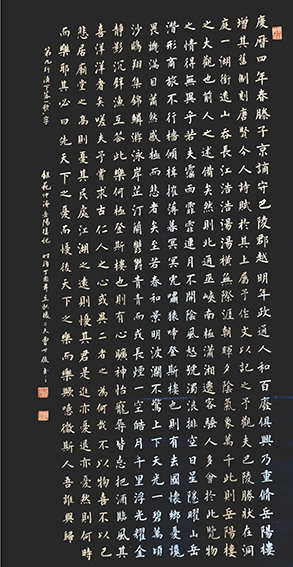 慶曆四年春滕子京謫守巴陵郡越明年政通人和百廢俱興乃重脩岳陽樓
增其舊制刻唐賢今人詩賦於其上屬予作文以記之予觀夫巴陵勝狀在洞
庭一湖銜遠山吞長江浩浩湯湯橫無際涯朝暉夕陰氣象萬千此則岳陽樓
之大觀也前人之述備矣然則北通巫峽南極瀟湘遷客騷人多會於此覽物
之情得無異乎若夫霪雨霏霏連月不開陰風怒號濁浪排空日星隱曜山岳
潛形商旅不行檣傾楫摧薄暮冥冥虎嘯猿啼登斯樓也則有去國懷鄉憂讒
畏譏滿目蕭然感極而悲者矣至若春和景明波瀾不驚上下天光一碧萬頃
沙鷗翔集錦鱗游泳岸芷汀蘭鬱鬱青青而或長煙一空皓月千里浮光躍金
靜影沉璧漁互答此樂何極登斯樓也則有心曠神怡寵辱皆忘把酒臨風其
喜洋洋者矣嗟夫予嘗求古仁人之心或異二者之為何哉不以物喜不以己
悲居廟堂之高則憂其民處江湖之遠則憂其君是進亦憂退亦憂然則何時
而樂耶其必曰先天下之憂而憂後天下之樂而樂歟噫微斯人吾誰與歸
第九行漁下落一歌字
錄范仲淹岳陽樓記 時維丁酉年立秋後三天曹